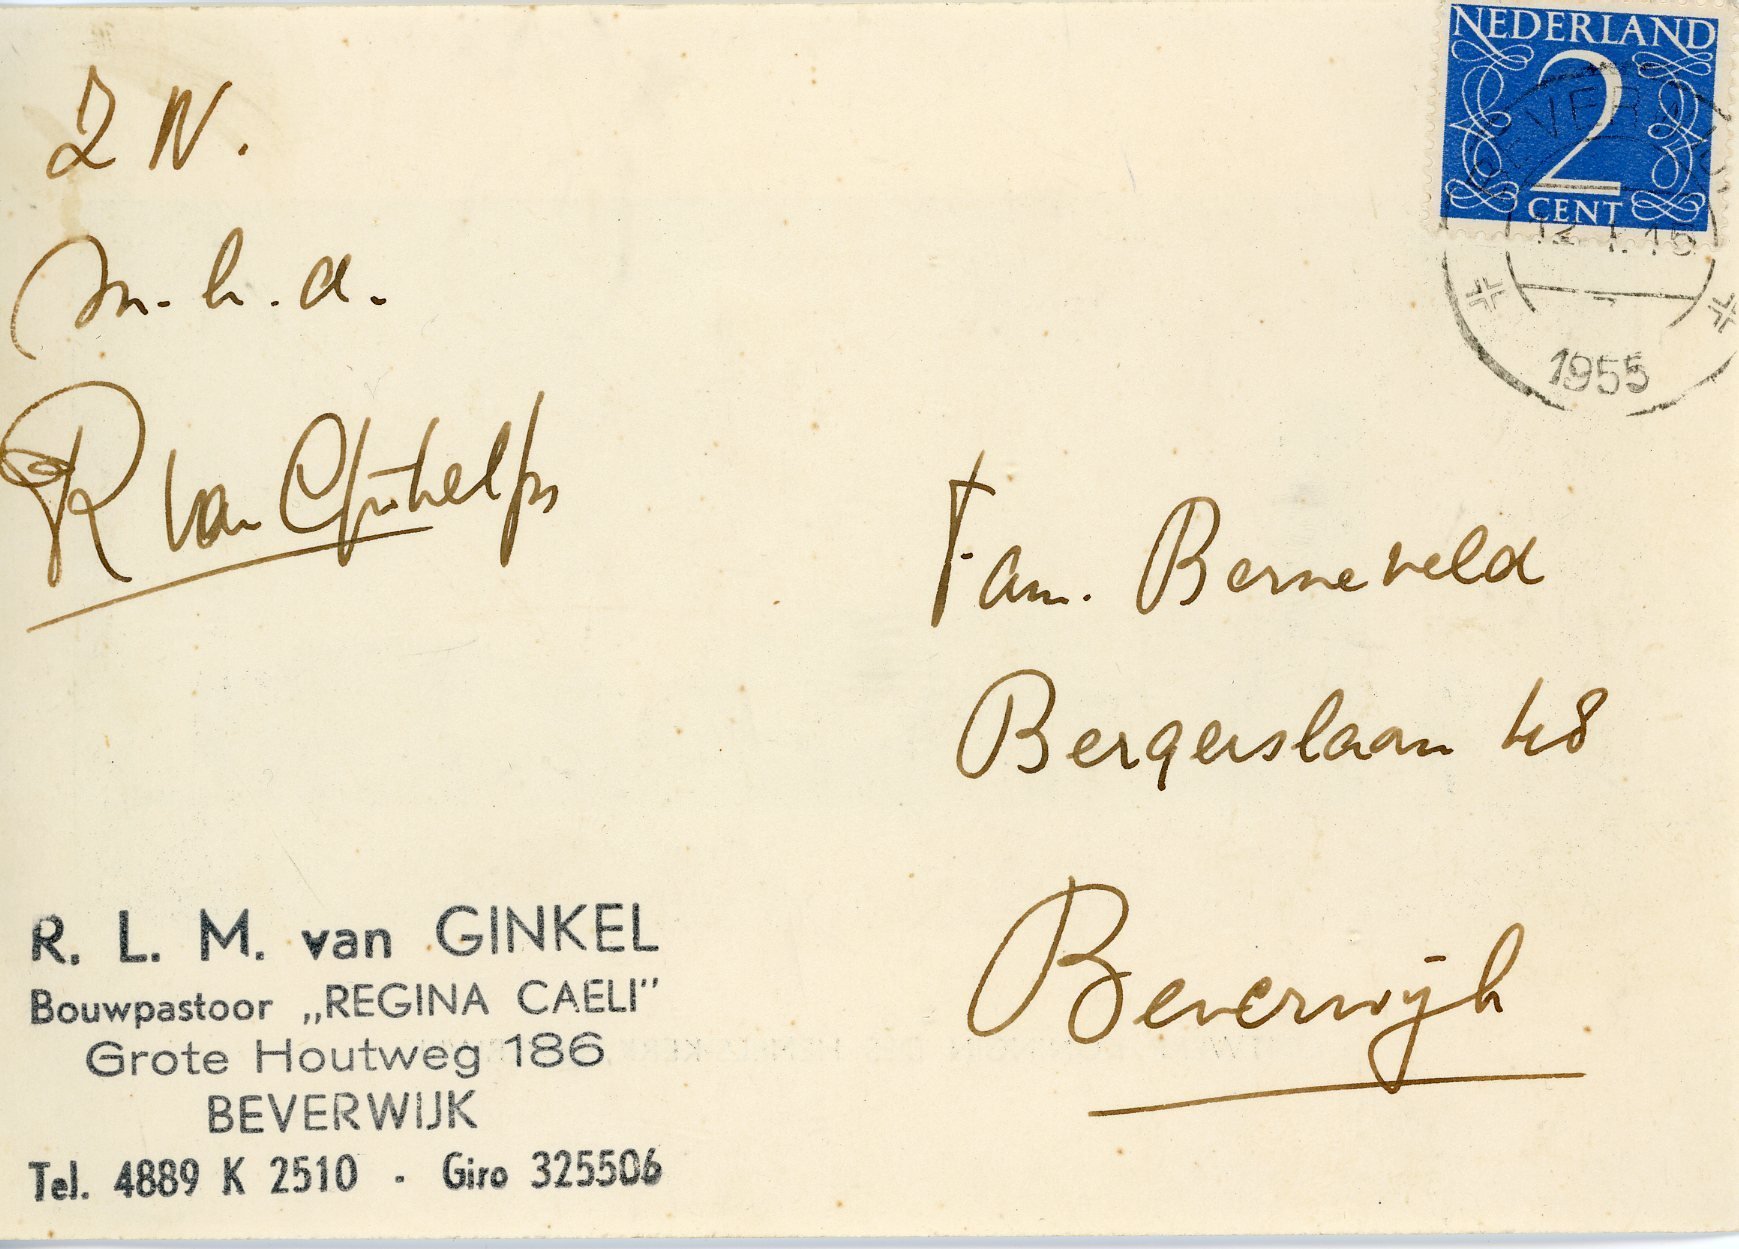 NEDERLAND
2
CENT
1955
Z N.
m. h. d.
R van Ginkel pr
Fam. Berneveld
Bergerslaan 48
Beverwijk
R. L. M. van GINKEL
Bouwpastoor „REGINA CAELI”
Grote Houtweg 186
BEVERWIJK
Tel. 4889 K 2510 - Giro 325506